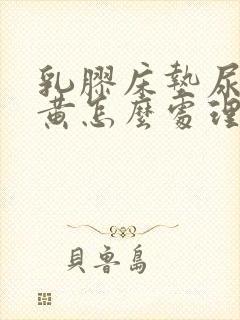 乳膠床墊尿
黄怎麼處理
貝魯島